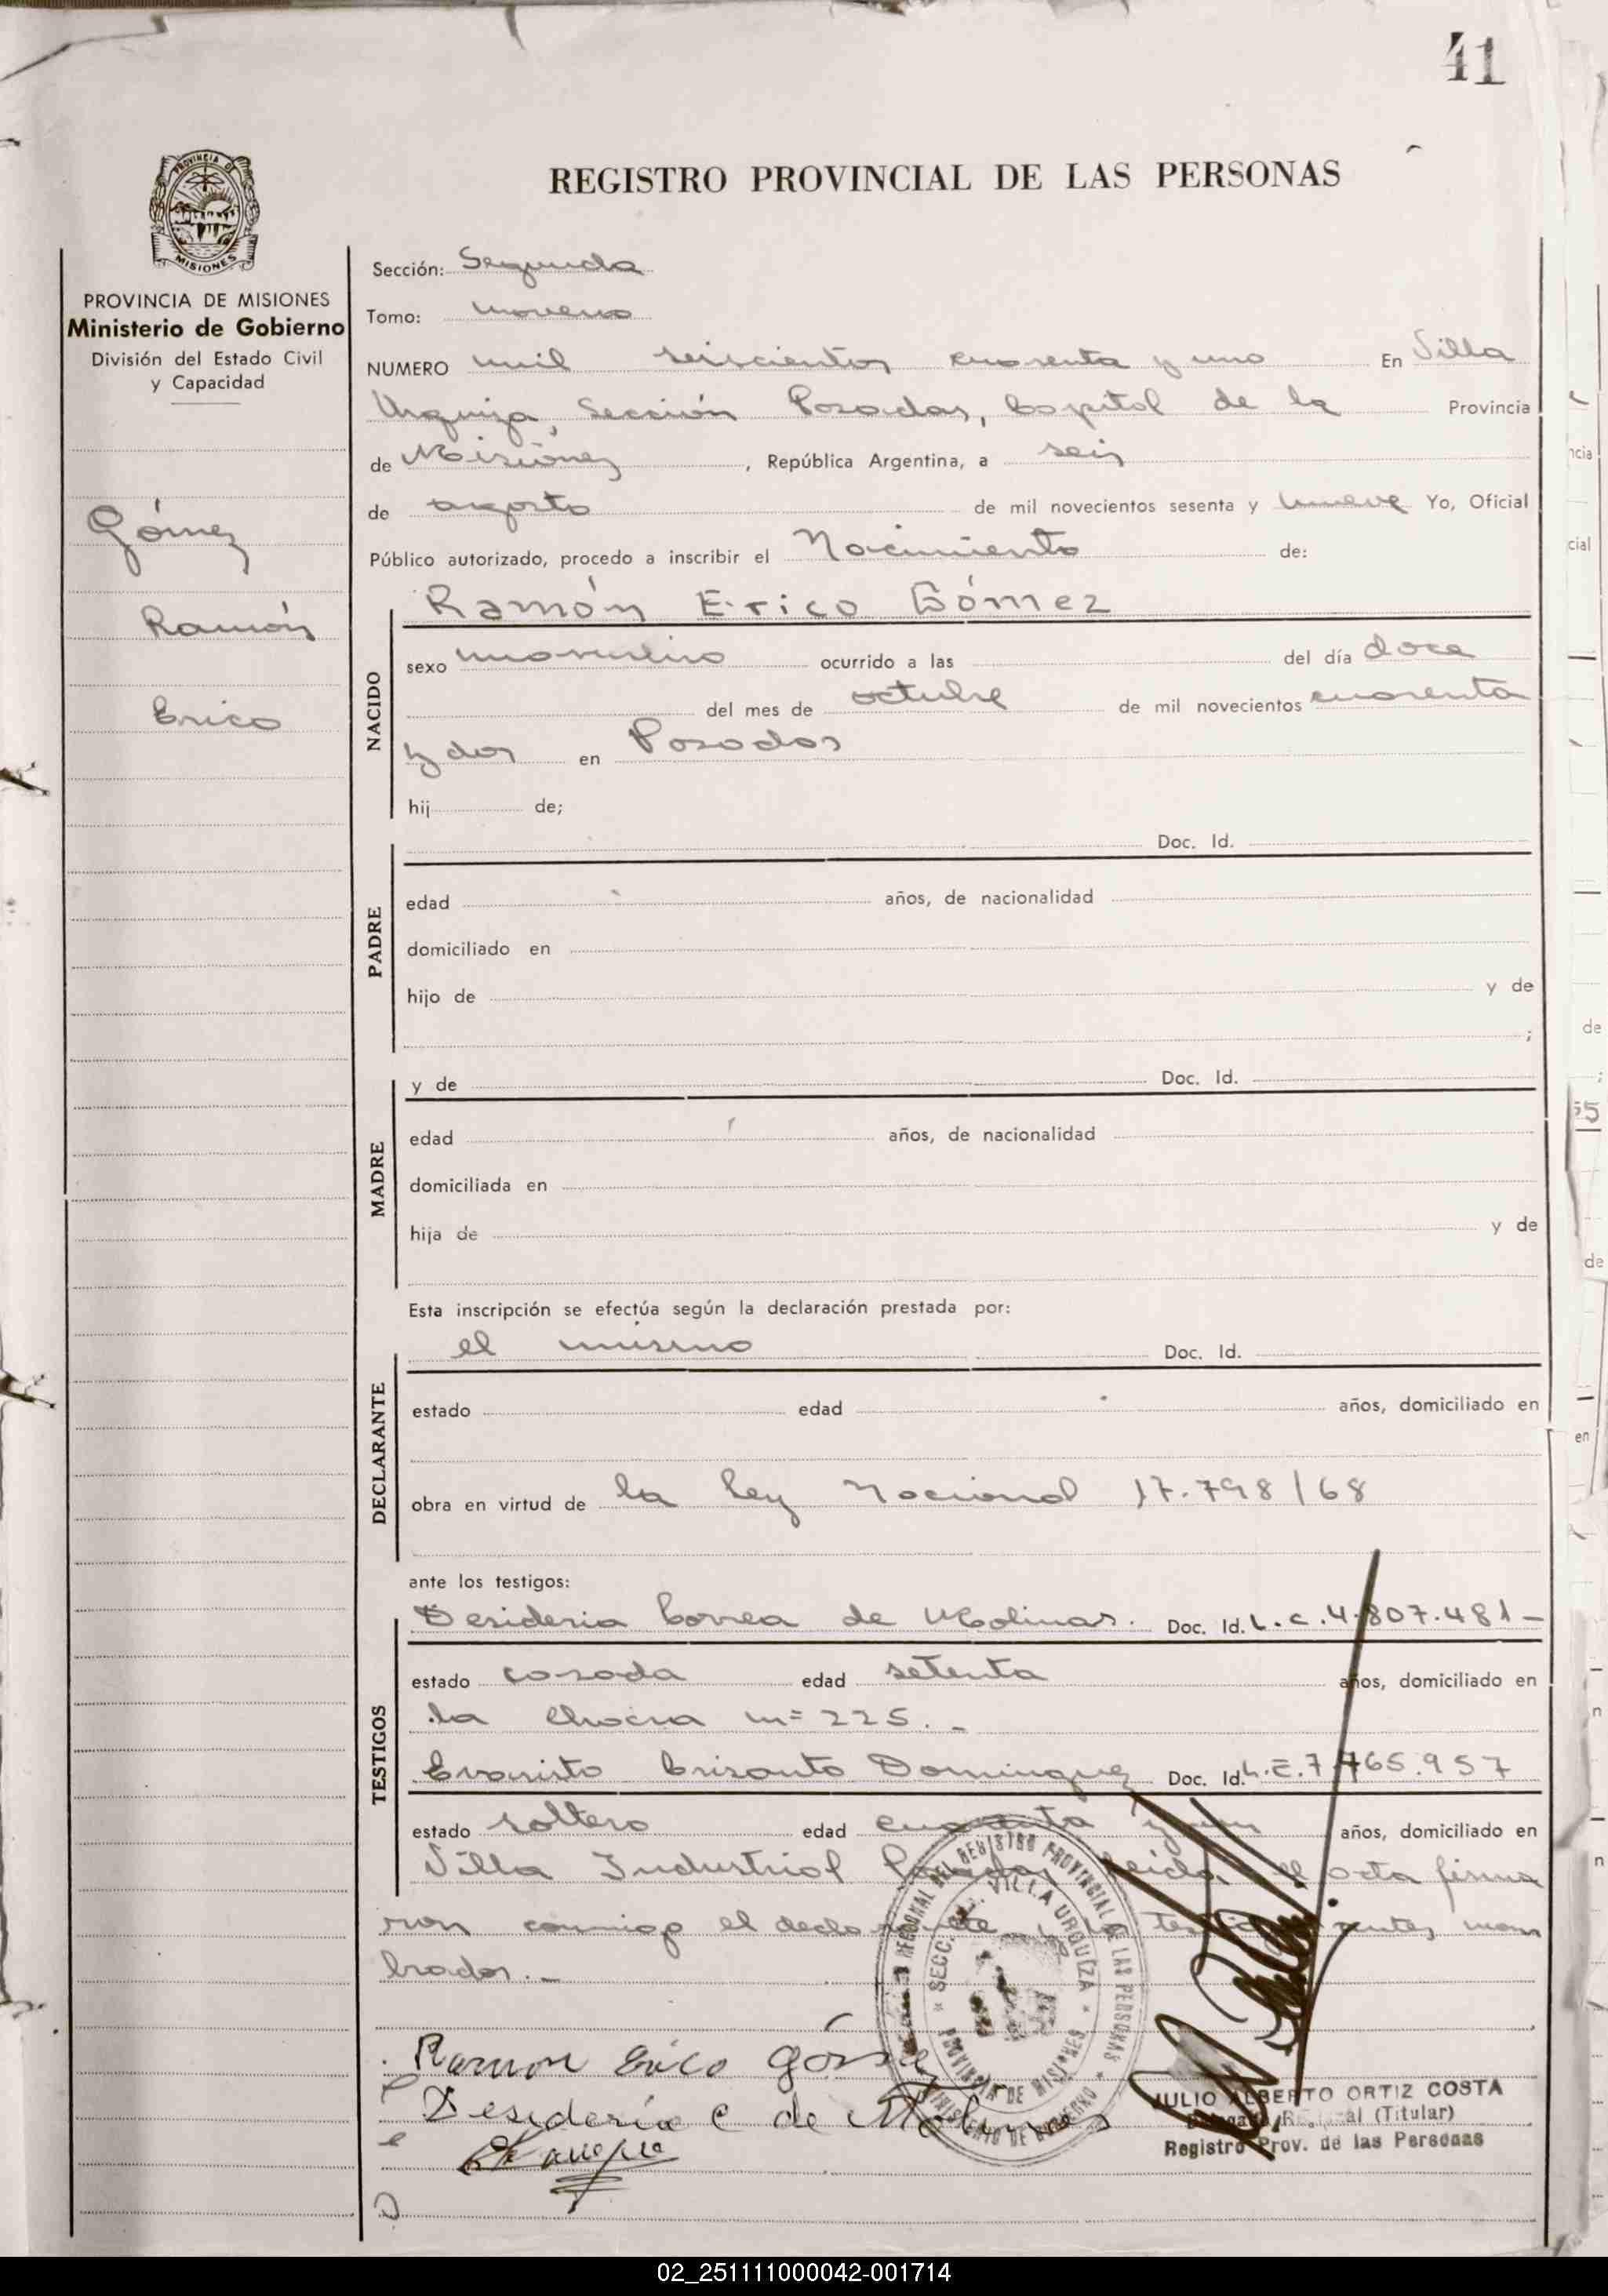 41
PROVINCIA DE
MISIONES
REGISTRO PROVINCIAL DE LAS PERSONAS
PROVINCIA DE MISIONES
Ministerio de Gobierno
División del Estado Civil
y Capacidad
Gómez
Ramón
Erico
Sección: Segunda
Tomo: noveno
NUMERO mil seiscientos cuarenta y uno En Villa
Urquiza, Sección Posadas, Capital de la Provincia
de Misiones, República Argentina, a seis
de agosto de mil novecientos sesenta y nueve Yo, Oficial
Público autorizado, procedo a inscribir el Nacimiento de:
NACIDO
Ramón Erico Gómez
sexo masculino ocurrido a las del día doce
del mes de octubre de mil novecientos cuarenta
y dos en Posadas
hij de;
PADRE
Doc. Id.
edad años, de nacionalidad
domiciliado en
hijo de y de
;
MADRE
y de Doc. Id.
edad años, de nacionalidad
domiciliada en
hija de y de
Esta inscripción se efectúa según la declaración prestada por:
DECLARANTE
el mismo Doc. Id.
estado edad años, domiciliado en
obra en virtud de la ley Nacional 17.798/68
ante los testigos:
TESTIGOS
Desideria Correa de Molinas. Doc. Id. L.C. 4.807.481-
estado casada edad setenta años, domiciliado en
la Chacra nº 225.-
Evaristo Crisanto Dominguez Doc. Id. L.E. 7.465.957
estado soltero edad cuarenta y un años, domiciliado en
Villa Industrial Posadas, leida el acta firma
ron conmigo el declarante y los testigos nom
brados.-
REGIONAL DEL REGISTRO PROVINCIAL DE LAS PERSONAS
MINISTERIO DE GOBIERNO
SECC. VILLA URQUIZA
PROVINCIA DE MISIONES
Ramon Erico Gómez
Desideria C de Molinas
JULIO ALBERTO ORTIZ COSTA
Delegado Regional (Titular)
Registro Prov. de las Personas
02_251111000042-001714